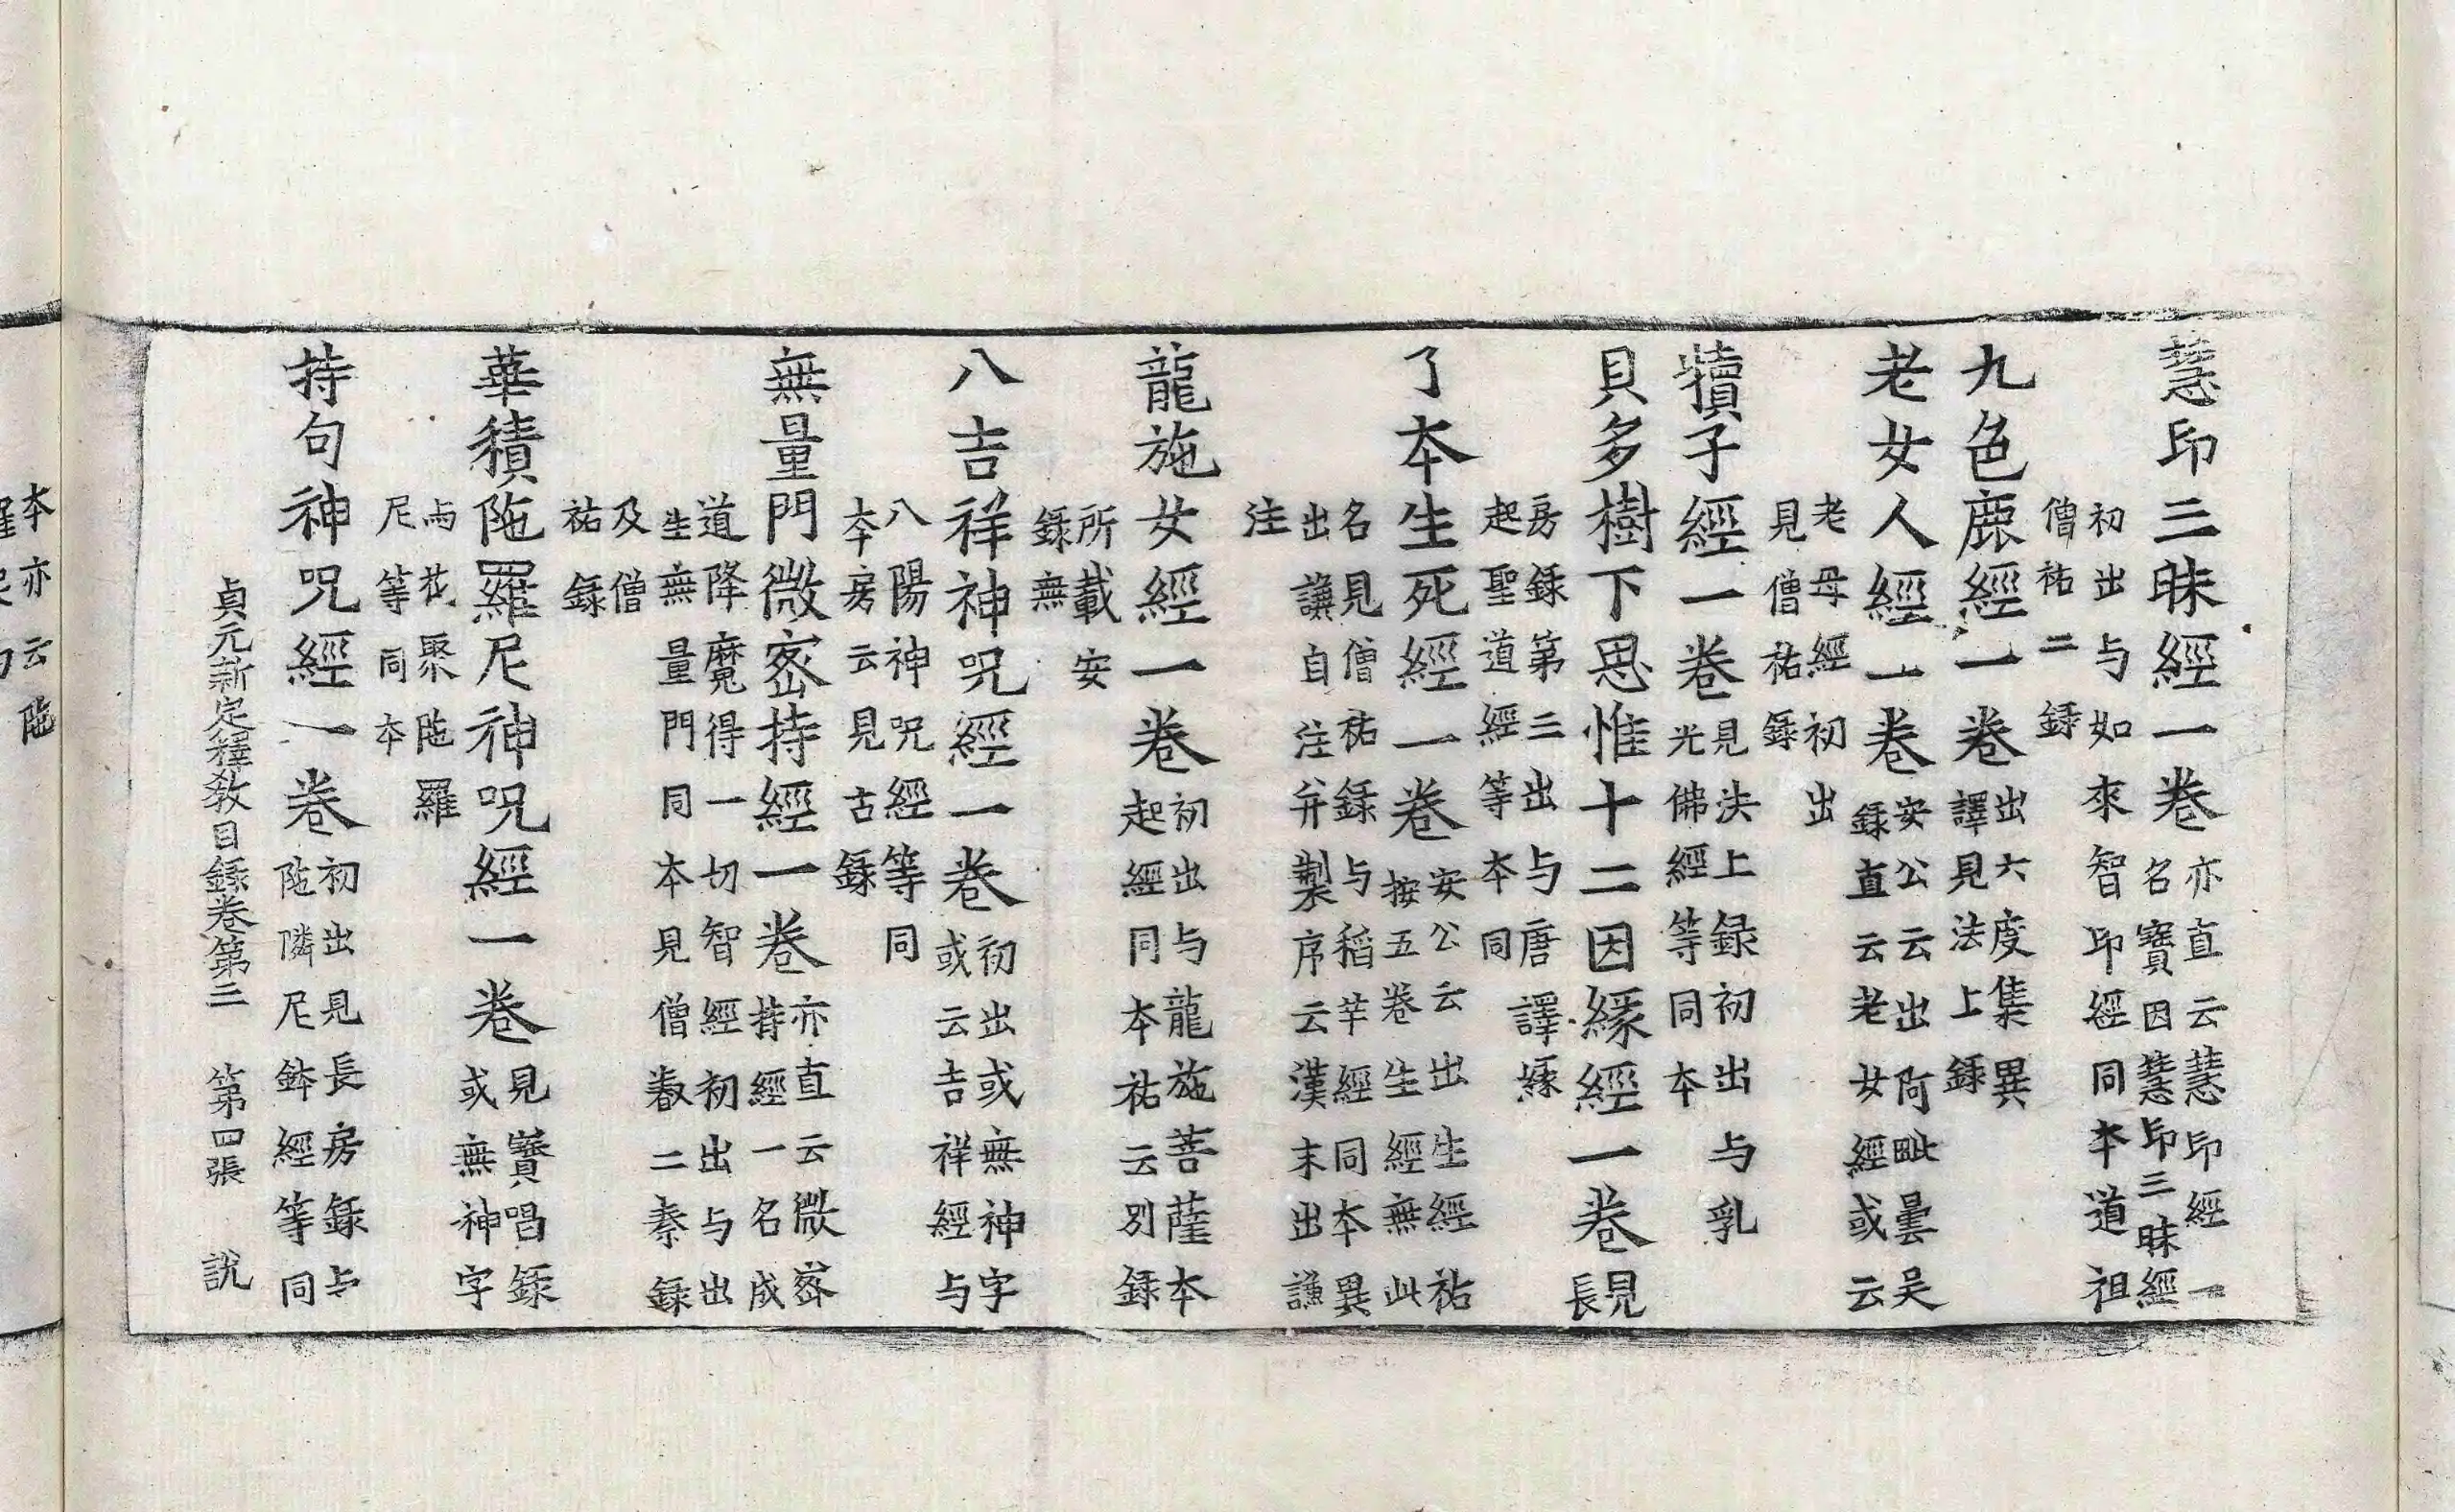 慧印三昧經一卷
亦直云慧印經一
名寶因慧印三昧經
初出与如來智印經同本道祖
僧祐二錄
九色鹿經一卷
出六度集異
譯見法上錄
老女人經一卷
安公云出阿毗曇吴
錄直云老女經或云
老母經初出
見僧祐錄
犢子經一卷
見法上録初出与乳
光佛經等同本
貝多樹下思惟十二因緣經一卷
見
長
房錄第三出与唐譯縁
起聖道經等本同
了本生死經一卷
安公云出生經祐
按五卷生經無此
名見僧祐錄与稻芉經同本異
出謙自注并製序云漢末出謙
注
龍施女經一卷
初出与龍施菩薩本
起經同本祐云別錄
所載安
錄無
八吉祥神呪經一卷
初出或無神字
或云吉祥經与
八陽神呪經等同
本房云見古錄
無量門微密持經一卷
亦直云微密
持經一名成
道降魔得一切智經初出与出
生無量門同本見僧叡二秦錄
及僧
祐錄
華積陁羅尼神呪經一卷
見寶唱錄
或無神字
与花聚陁羅
尼等同本
持句神呪經一卷
初出見長房錄与
陁隣尼鉢經等同
貞元新定釋教目錄卷第三 第四張 說
本亦云陁